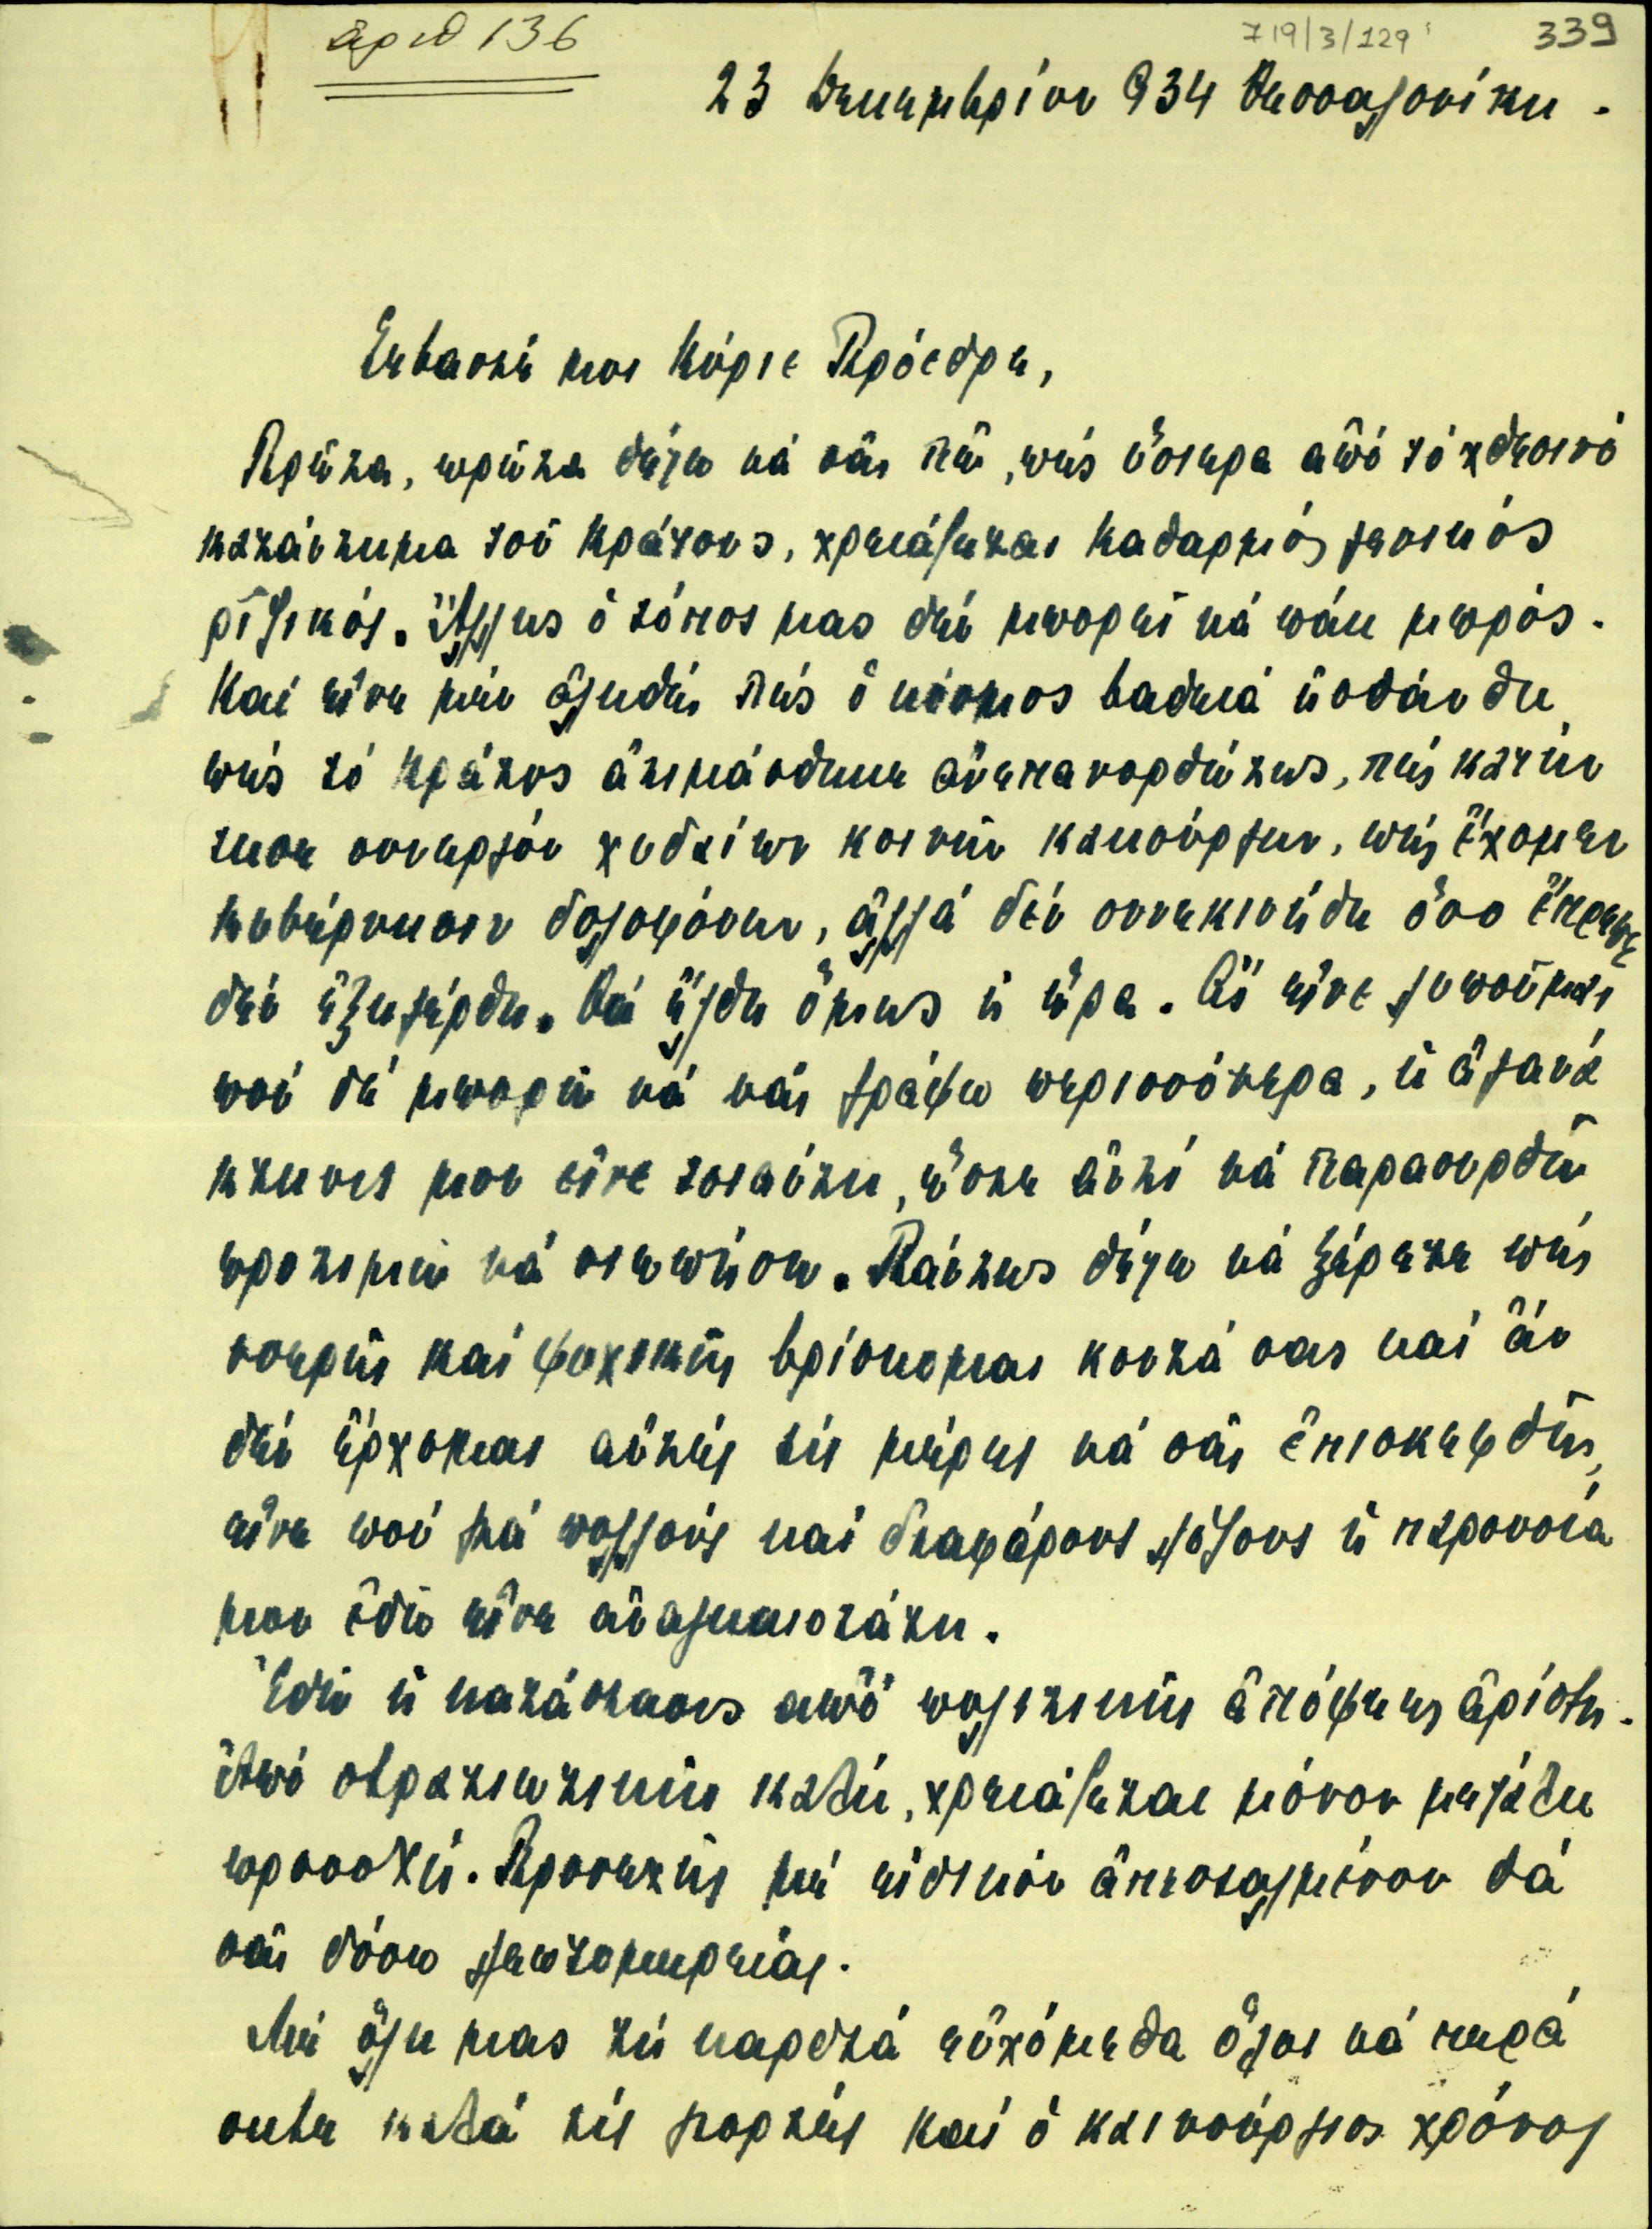 ἀριθ 136
719/3/129
339
23 Δεκεμβρίου 934 Θεσσαλονίκη.
Σεβαστέ μου Κύριε Πρόεδρε,
Πρῶτα, πρῶτα θέλω νά σᾶς πῶ, πώς ὕστερα ἀπό τό χθεσινό
κατάντημα τοῦ Κράτους, χρειάζεται καθαρμός γενικός
ριζικός. Ἄλλως ὁ τόπος μας δέν μπορεῖ νά πάη μπρός.
Καί εἶνε μέν ἀληθές πώς ὁ κόσμος βαθειά ᾐσθάνθη
πώς τό Κράτος ἀτιμάσθηκε ἀνεπανορθώτως, πώς κατήν
τησε συνεργόν χυδαίων κοινῶν κακούργων, πώς ἔχομεν
Κυβέρνησιν δολοφόνων, ἀλλά δέν συνεκινήθη ὅσο ἔπρεπε
δέν ἐξηγέρθη. Θά ἔλθη ὅμως ἡ ὥρα. Ἄς εἶνε λυποῦμαι
πού δέ μπορῶ νά σᾶς γράψω περισσότερα, ἡ ἀγανά
κτησις μου εἶνε τοιαύτη, ὥστε ἀντί νά παρασυρθῶ
προτιμῶ νά σιωπήσω. Πάντως θέλω νά ξέρετε πώς
νοερῶς καί ψυχικῶς βρίσκομαι κοντά σας καί ἄν
δέν ἔρχομαι αὐτές τίς μέρες νά σᾶς ἐπισκεφθῶ,
εἶνε πού γιά πολλούς καί διαφόρους λόγους ἡ παρουσία
μου ἐδῶ εἶνε ἀναγκαιοτάτη.
Ἐδῶ ἡ κατάστασις ἀπό πολιτικῆς ἀπόψεως ἀρίστη.
Ἀπό στρατιωτικῆς καλή, χρειάζεται μόνον μεγάλη
προσοχή. Προσεχῶς μέ εἰδικόν ἀπεσταλμένον θά
σᾶς δόσω λεπτομερείας.
Μέ ὅλη μας τή καρδιά εὐχόμεθα ὅλοι νά περά
σετε καλά τίς γιορτές καί ὁ καινούργιος χρόνος